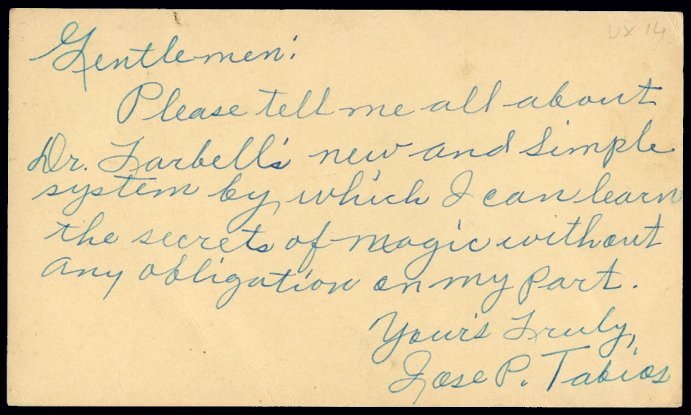 UX 14
Gentlemen:
Please tell me all about
Dr. Tarbell's new and simple
system by which I can learn
the secrets of magic without
any obligation on my part.
Your's Truly,
Jose P. Tabios